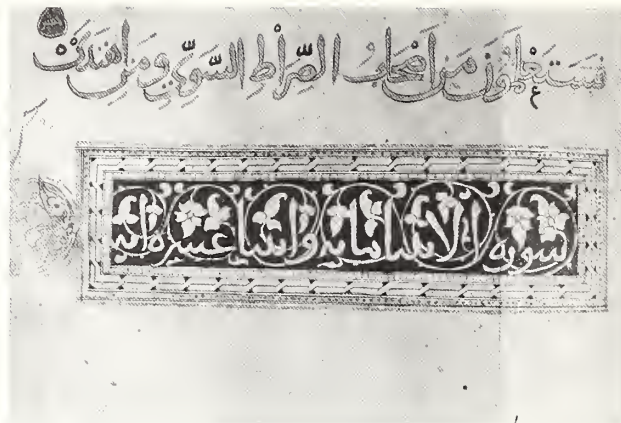 فستعلمون من اصحاب الصِّرَاطِ السَّوِيِّ ومن اهتدى
سوره الانبيا مايه واثنتا عشره ايه